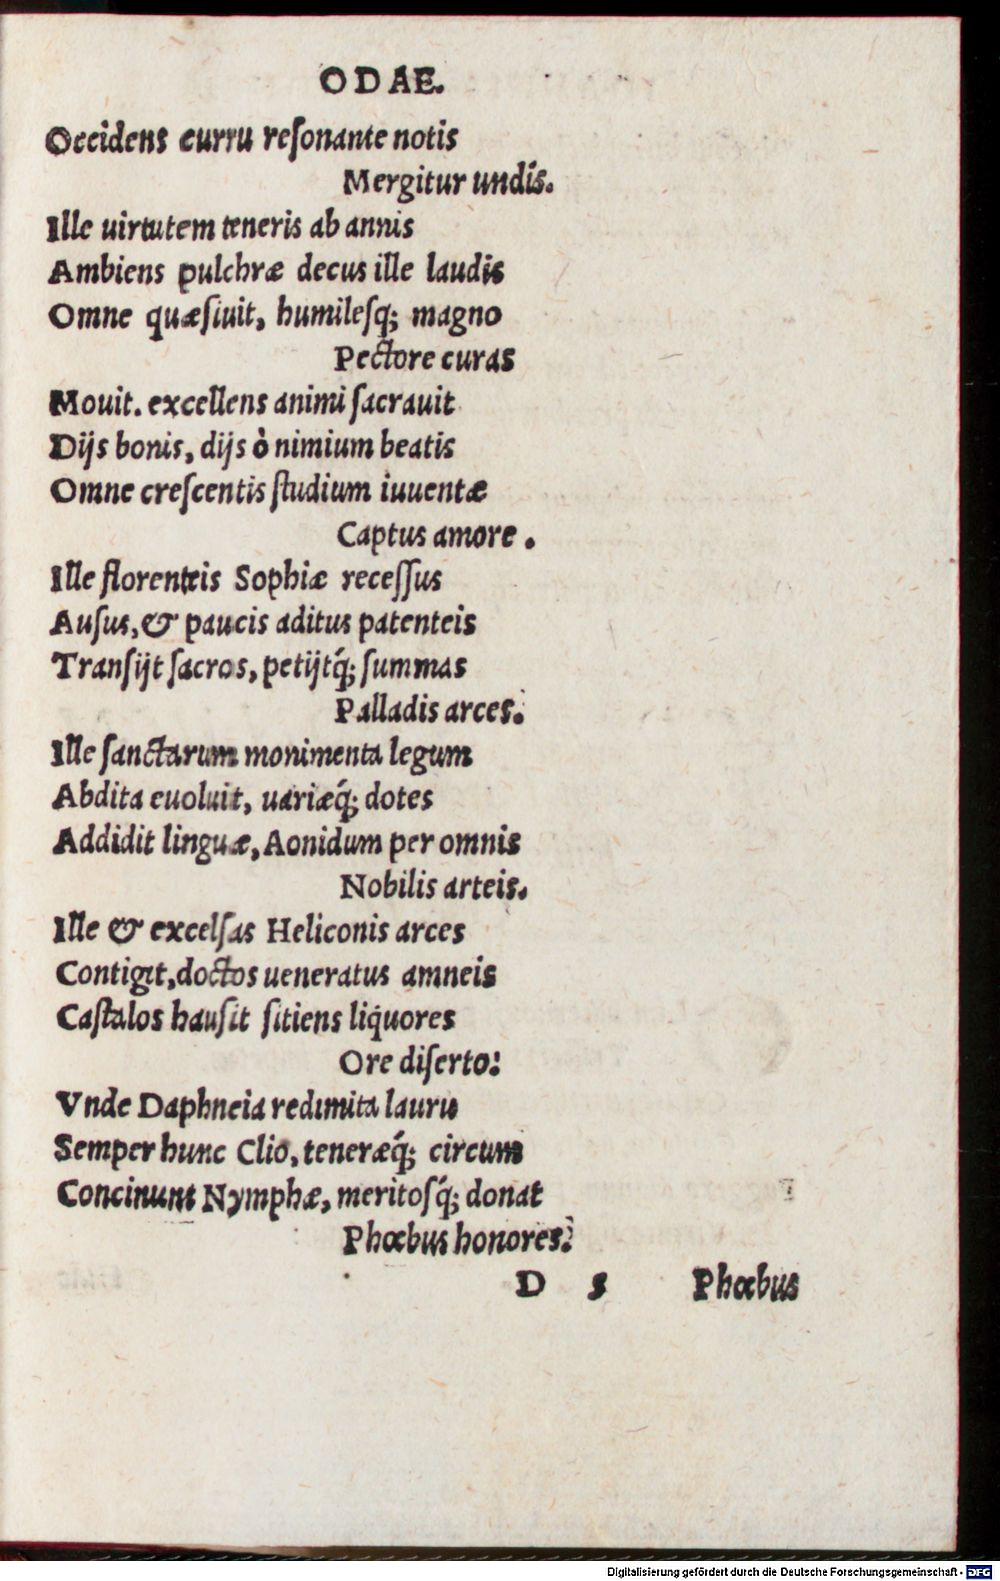 ODAE.
Occidens curru resonante notis
Mergitur undis.
Ille uirtutem teneris ab annis
Ambiens pulchræ decus ille laudis
Omne quæsiuit, humilesq; magno
Pectore curas
Mouit. excellens animi sacrauit
Dijs bonis, dijs ò nimium beatis
Omne crescentis studium iuuentæ
Captus amore.
Ille florenteis Sophiæ recessus
Ausus, & paucis aditus patenteis
Transijt sacros, petijtq́; summas
Palladis arces.
Ille sanctarum monimenta legum
Abdita euoluit, uariæq́; dotes
Addidit linguæ, Aonidum per omnis
Nobilis arteis.
Ille & excelsas Heliconis arces
Contigit, doctos ueneratus amneis
Castalos hausit sitiens liquores
Ore diserto:
Vnde Daphneia redimita lauru
Semper hunc Clio, teneræq́; circum
Concinunt Nymphæ, meritosq́; donat
Phœbus honores.
D 5 Phœbus
Digitalisierung gefördert durch die Deutsche Forschungsgemeinschaft - DFG